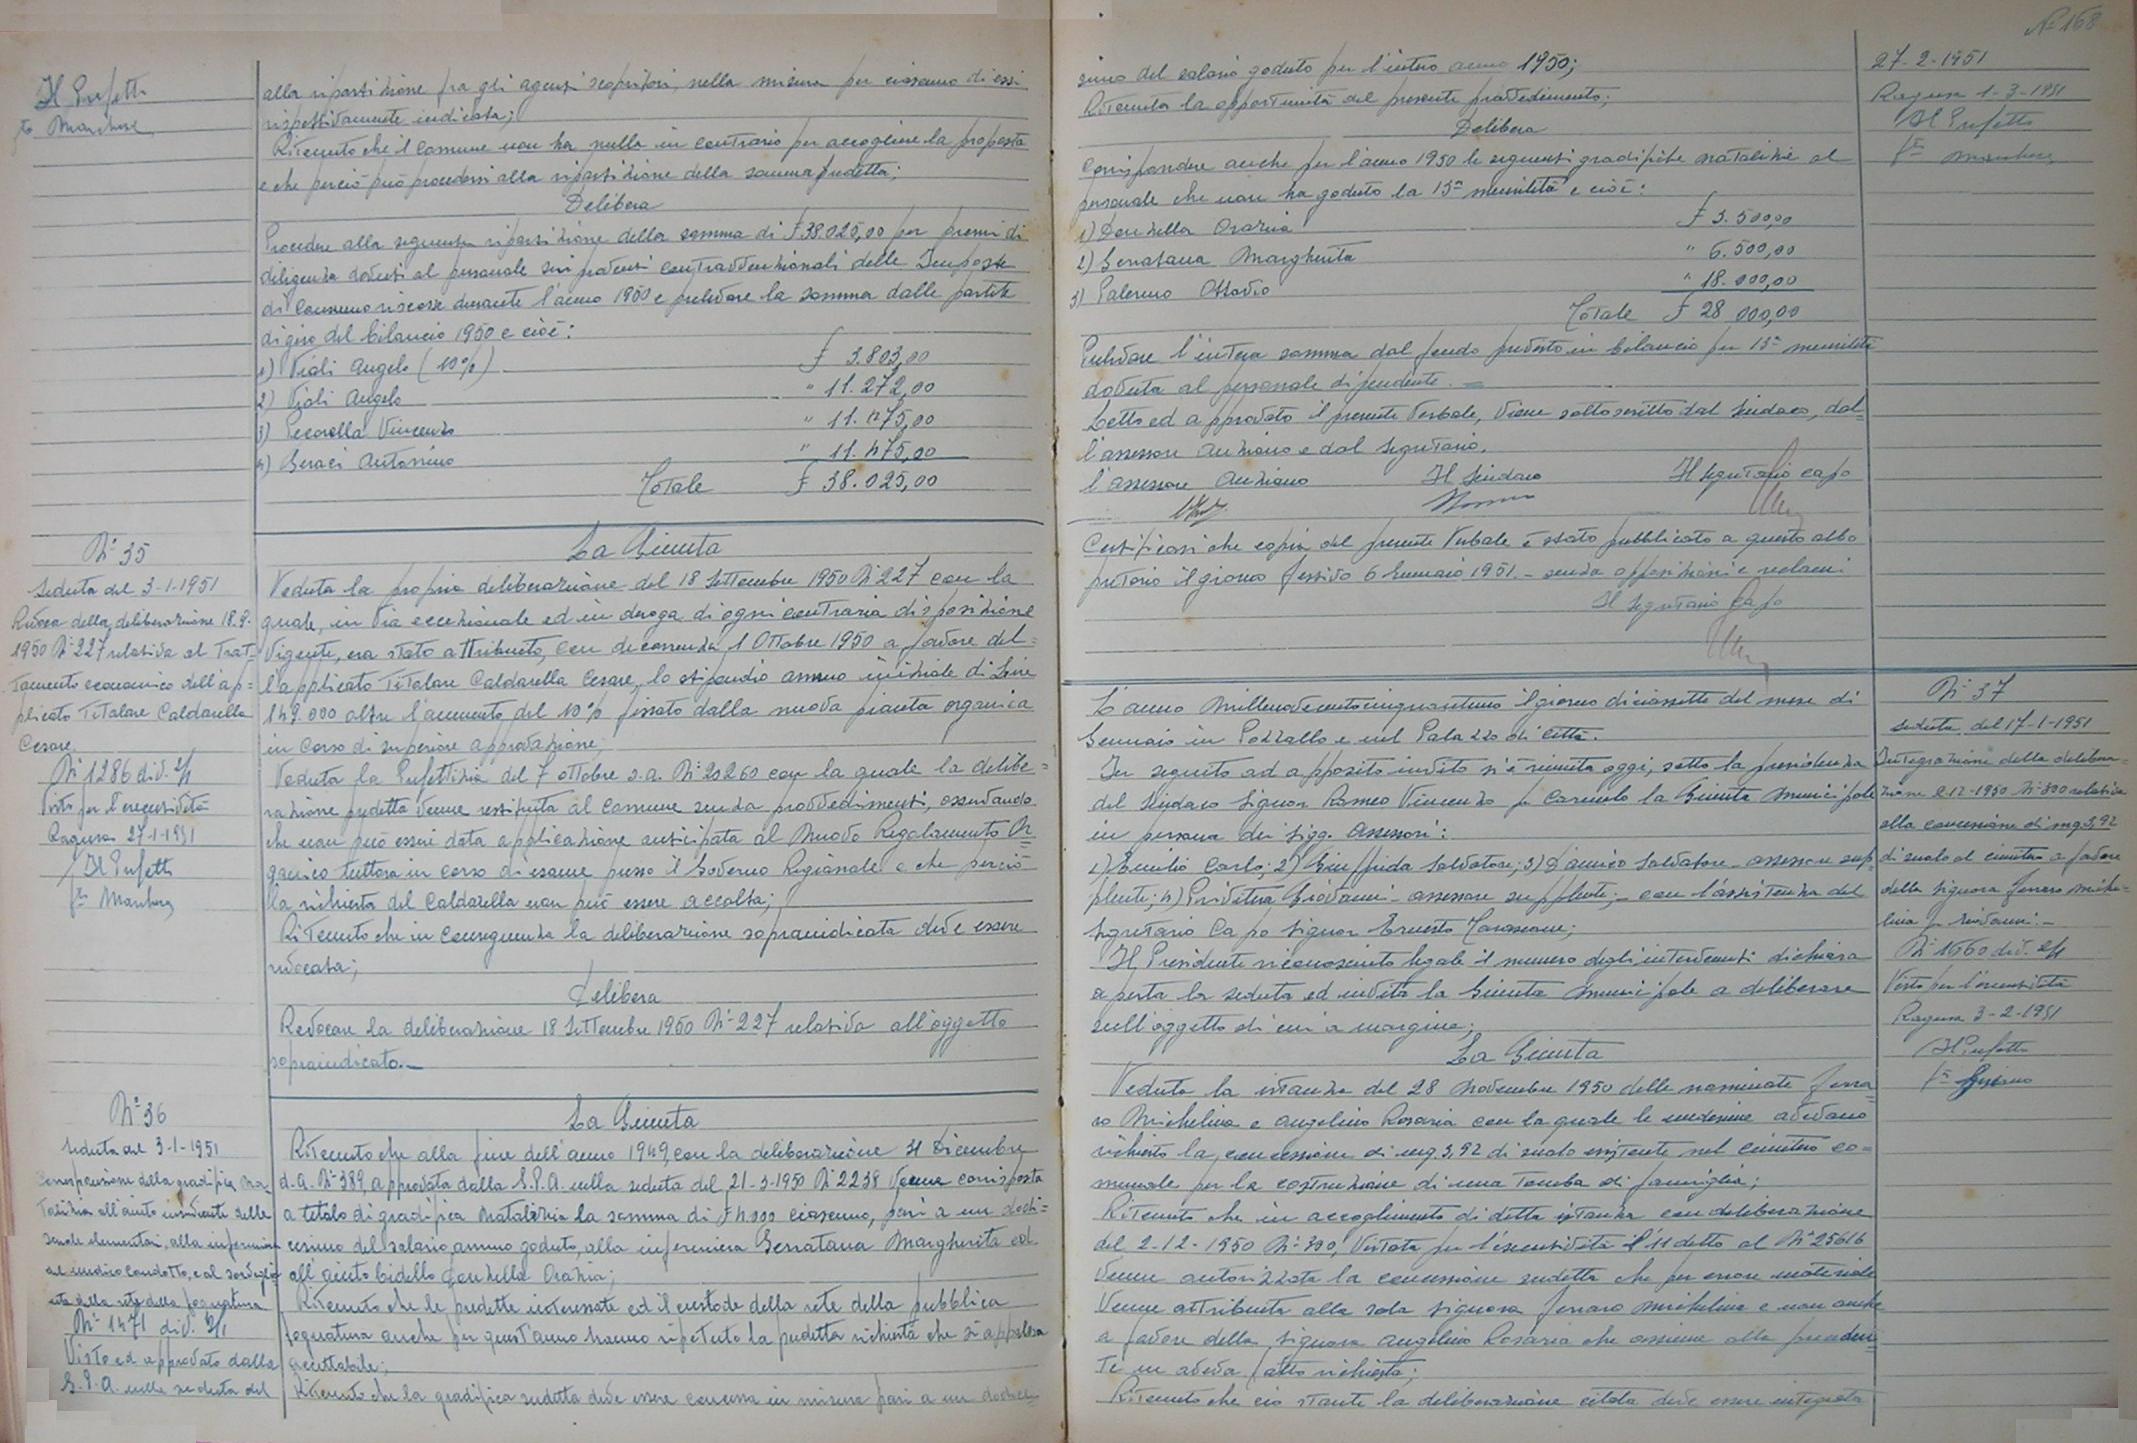 Il Prefetto
alla ripartizione fra gli agenti scopritori, nella misura per ciascuno di essi
rispettivamente indicata;
Ritenuto che il Comune non ha nulla in contrario per accogliere la proposta
e che perciò può procedersi alla ripartizione della somma predetta;
Delibera
Procedere alla seguente ripartizione della somma di £ 38.025,00 per premi di
diligenza dovuti al personale sui proventi contravvenzionali delle Imposte
di Consumo riscosse durante l'anno 1950 e prelevare la somma dalle partite
di giro del bilancio 1950 e cioè:
1) Violi Angelo (10%) £ 3.803,00
2) Violi Angelo " 11.272,00
3) Pecorella Vincenzo " 11.475,00
4) Geraci Antonino " 11.475,00
Totale £ 38.025,00
N° 35
Seduta del 3-1-1951
Revoca della deliberazione 18.9.
1950 N° 227 relativa al Trat=
tamento economico dell'ap=
plicato Titolare Caldarella
Cesare.
N° 1286 div. 2/1
Visto per l'esecutività
Ragusa 27-1-1951
Il Prefetto
La Giunta
Veduta la propria deliberazione del 18 Settembre 1950 N° 227 con la
quale, in via eccezionale ed in deroga di ogni contraria disposizione
vigente, era stato attribuito, con decorrenza 1 Ottobre 1950 a favore del=
l'applicato Titolare Caldarella Cesare, lo stipendio annuo iniziale di Lire
149.000 oltre l'aumento del 10% fissato dalla nuova pianta organica
in corso di superiore approvazione;
Veduta la Prefettizia del 7 ottobre s.a. N° 20260 con la quale la delibe=
razione predetta venne restituita al Comune senza provvedimenti, osservando
che non può essere data applicazione anticipata al Nuovo Regolamento Or=
ganico tuttora in corso di esame presso il Governo Regionale e che perciò
la richiesta del Caldarella non può essere accolta;
Ritenuto che in conseguenza la deliberazione sopraindicata deve essere
revocata;
Delibera
Revocare la deliberazione 18 Settembre 1950 N° 227 relativa all'oggetto
sopraindicato.
N° 36
Seduta del 3-1-1951
Corresponsione della gratifica Na=
talizia all'aiuto inserviente delle
scuole elementari, alla infermiera
del medico condotto, e al
della rete della fognatura
N° 1471 div. 2/1
Visto ed approvato dalla
G.P.A. nella seduta del
La Giunta
Ritenuto che alla fine dell'anno 1949, con la deliberazione 31 Dicembre
d.a. N° 389, approvata dalla G.P.A. nella seduta del 21-3-1950 N° 2238 venne corrisposta
a titolo di gratifica Natalizia la somma di £ 4.000 ciascuno, pari a un dodi=
cesimo del salario annuo goduto, alla infermiera Serratana Margherita ed
all'aiuto bidello Donzella Orazia;
Ritenuto che le predette interessate ed il custode della rete della pubblica
fognatura anche per quest'anno hanno ripetuto la predetta richiesta che si appalesa
accettabile;
Ritenuto che la gratifica sudetta deve essere concessa in misura pari a un dodice=
N° 168
simo del salario goduto per l'intero anno 1950;
Ritenuta la opportunità del presente provvedimento;
Delibera
Corrispondere anche per l'anno 1950 le seguenti gratifiche natalizie al
personale che non ha goduto la 13ª mensilità e cioè:
1) Donzella Orazia £ 3.500,00
2) Serratana Margherita " 6.500,00
3) Palermo Ottavio " 18.000,00
Totale £ 28.000,00
Prelevare l'intera somma dal fondo previsto in bilancio per 13ª mensilità
dovuta al personale dipendente.
Letto ed approvato il presente Verbale, viene sottoscritto dal Sindaco, dal=
l'assessore Anziano e dal Segretario.
L'assessore Anziano Il Sindaco Il Segretario Capo
Certificasi che copia del presente Verbale è stato pubblicato a questo albo
pretorio il giorno festivo 6 Gennaio 1951. - senza opposizioni e reclami
Il Segretario Capo
27-2-1951
Ragusa 1-3-1951
Il Prefetto
L'anno Millenovecentocinquantuno il giorno diciassette del mese di
Gennaio in Pozzallo e nel Palazzo di Città.
In seguito ad apposito invito si è riunita oggi, sotto la presidenza
del Sindaco Signor Romeo Vincenzo fu Carmelo la Giunta Municipale
in persona dei Sigg. Assessori:
1) Emilio Carlo; 2) Giuffrida Salvatore; 3) D'amico Salvatore - assessore sup=
plente; 4) Privitera Giovanni - assessore supplente; - con l'assistenza del
Segretario Capo Signor Ernesto
Il Presidente riconosciuto legale il numero degli intervenuti dichiara
aperta la seduta ed invita la Giunta Municipale a deliberare
sull'oggetto di cui a margine;
La Giunta
Veduta la istanza del 28 Novembre 1950 delle nominate Ferra
ro Michelina e Angelino Rosaria con la quale le medesime avevano
richiesto la concessione di mq. 3,92 di suolo esistente nel cimitero co=
munale per la costruzione di una Tomba di famiglia;
Ritenuto che in accoglimento di detta istanza con deliberazione
del 2-12-1950 N° 300, vistata per l'esecutività il 11 detto al N° 25616
venne autorizzata la concessione sudetta che per errore materiale
venne attribuita alla sola Signora Ferraro Michelina e non anche
a favore della Signora Angelino Rosaria che assieme alla preceden=
te ne aveva fatto richiesta;
Ritenuto che ciò stante la deliberazione citata deve essere integrata
N° 37
Seduta del 17-1-1951
Integrazione della delibera=
zione 2-12-1950 N° 300 relativa
alla concessione di mq. 3,92
di suolo al cimitero a favore
della Signora Ferraro Miche=
lina fu Giovanni. -
N° 1660 div. 2/1
Visto per l'esecutività
Ragusa 3-2-1951
Il Prefetto